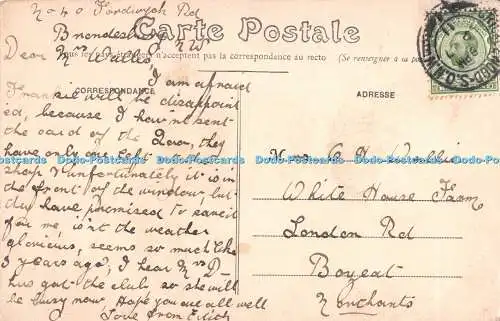 No 40 Fordwych Rd
Brondesbury
N W
Carte Postale
Tous les pays étrangers n'acceptent pas la correspondance au recto (Se renseigner à sa
CORRESPONDANCE
ADRESSE
Dear Mrs Wallis,
I am afraid
Frankie will be disappoint
ed, because I have not sent
the card of the Zoo, they
have only one left in the
shop & unfortunately it is in
the front of the window, but
they have promised to save it
for me, isn't the weather
glorious, seems so much like
3 years ago, I hear Mrs D-
has got the club, so she will
be busy now Hope you are all well
Love from Edith
Mrs A H Wallis
White House Farm
London Rd
Bozeat
Northants
Dodo-Postcards Dodo-Postcards Dodo-Postcards Dodo-Postcards Dodo-Postcards